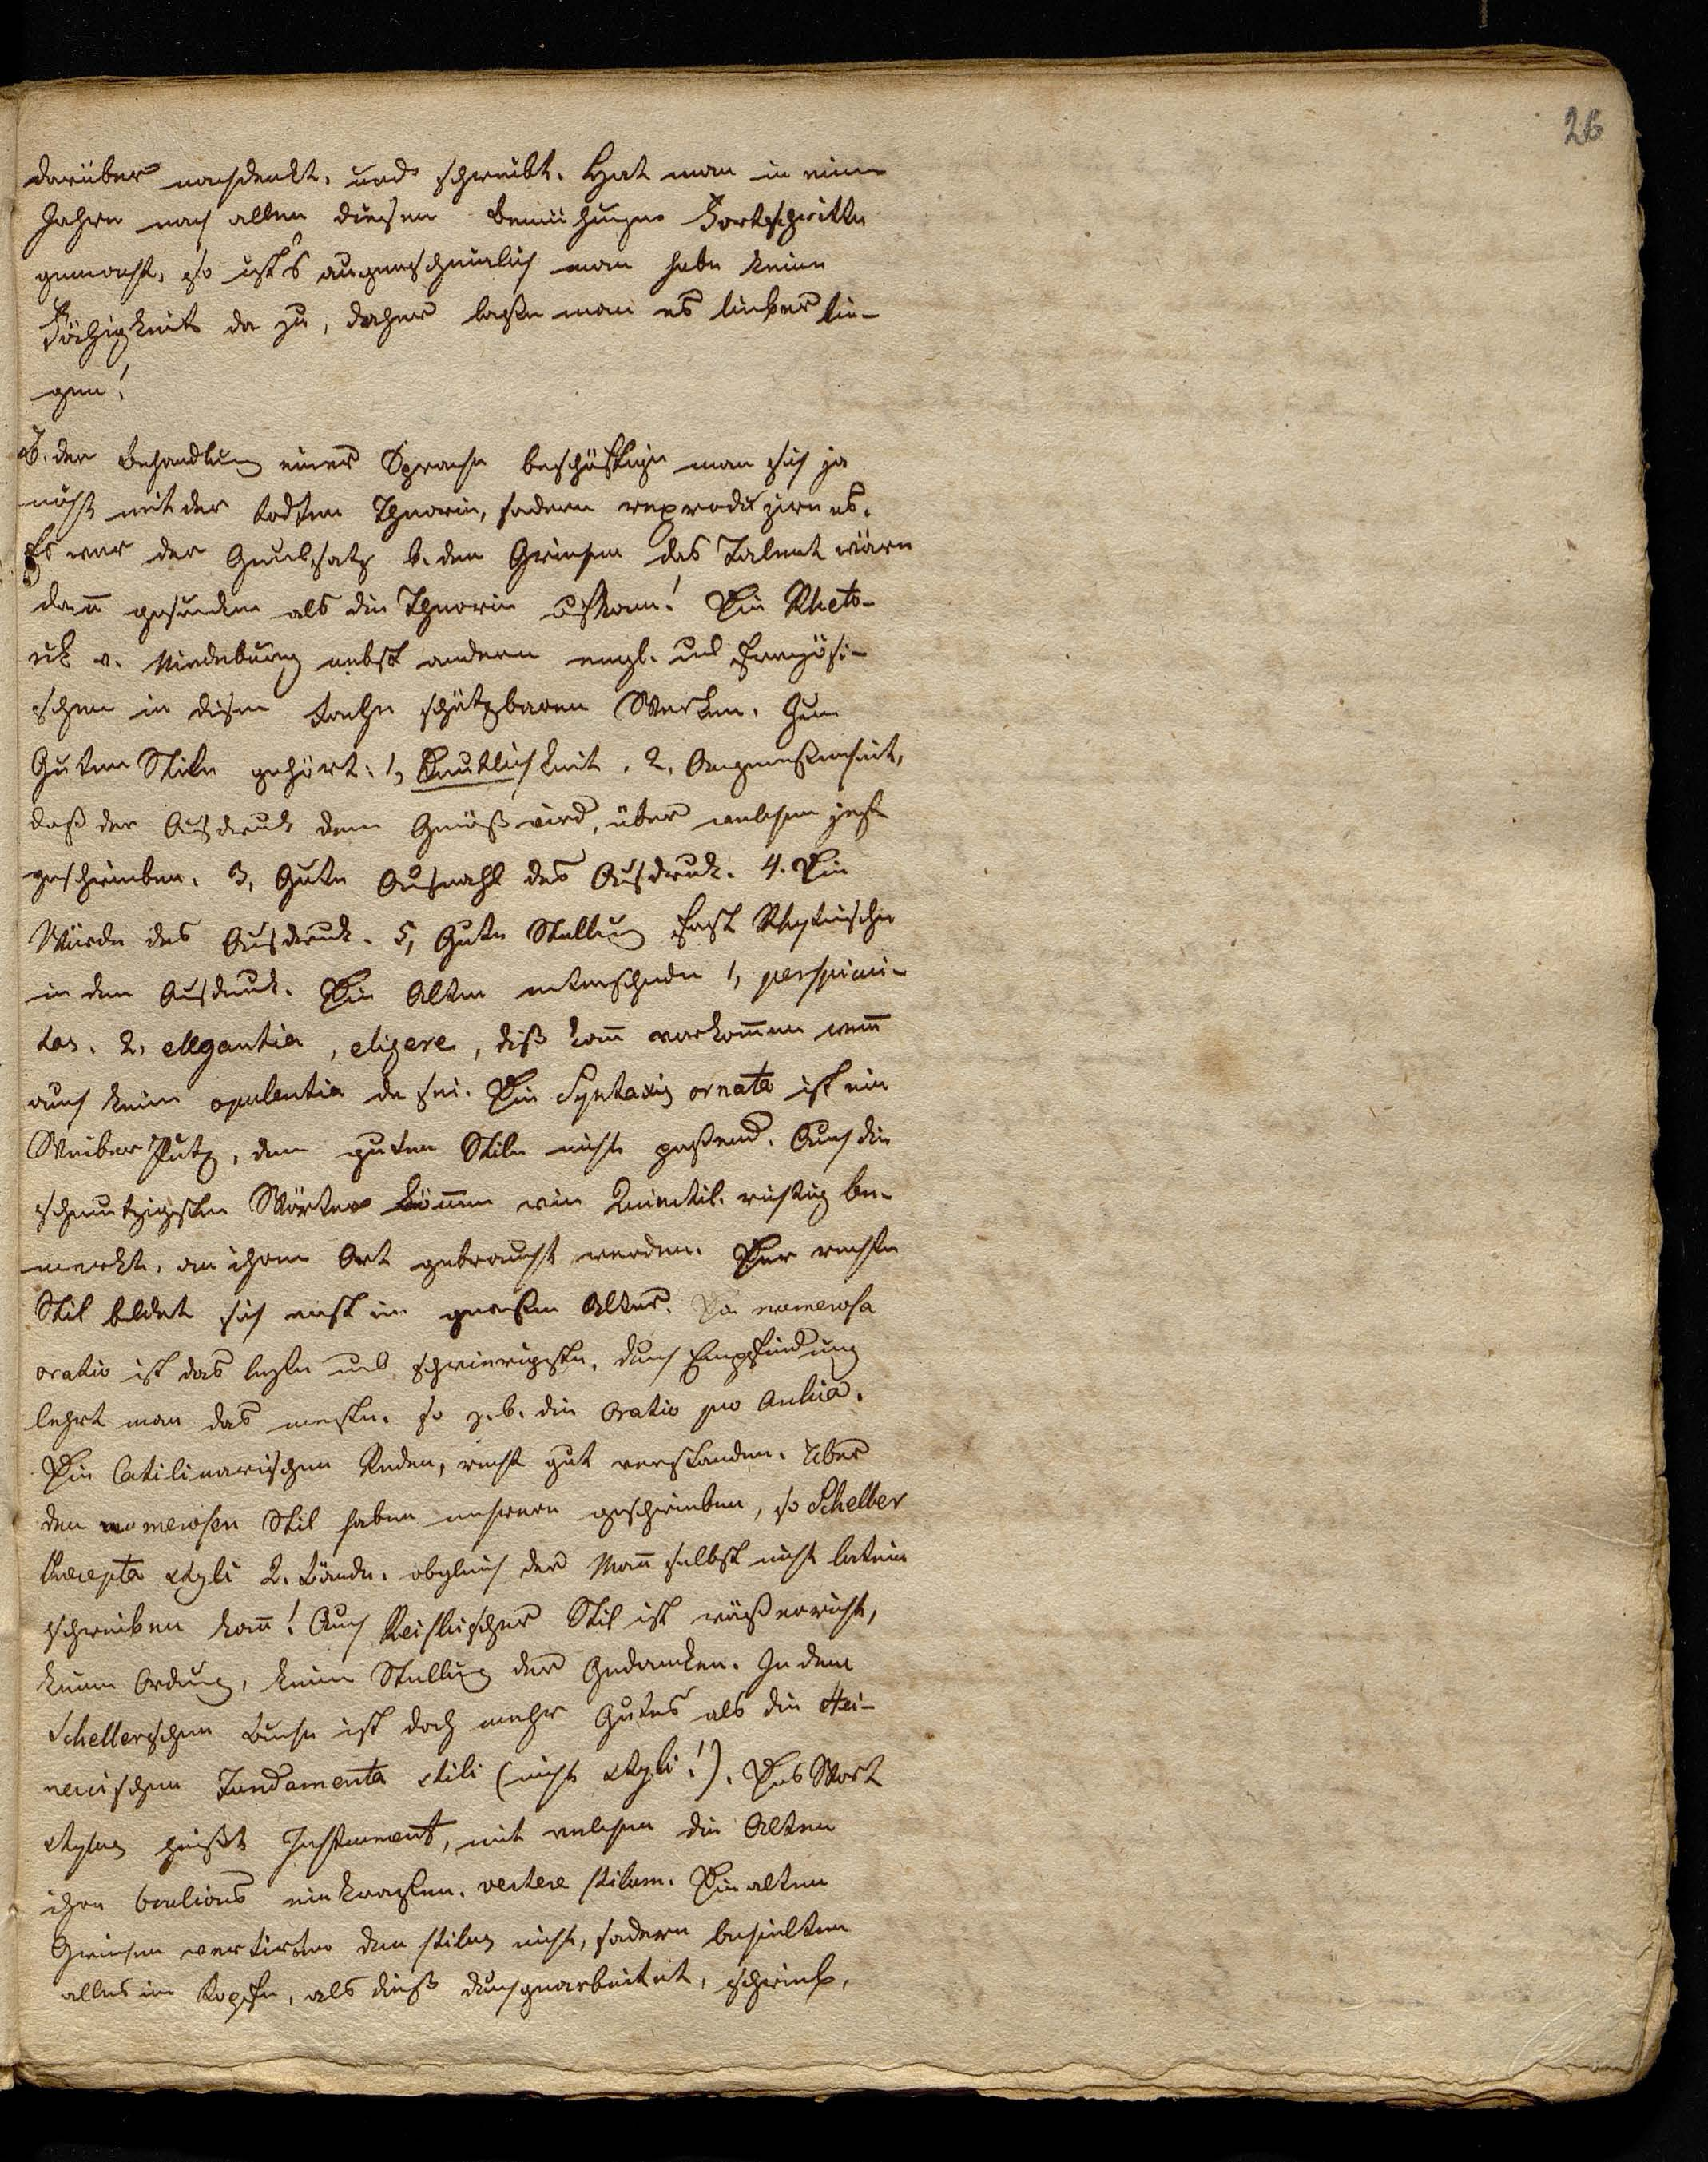 26
darüber nachdenkt, und schreibt. Hat man in einem
Jahre nach allen diesen Bemühungen Fortschritte
gemacht, so ist's augenscheinlich man habe keine
Fähigkeit da zu, daher laße man es lieber lie-
gen!
B. der Behandlung einer Sprache beschäftige man sich ja
nicht mit der todten Theorie, sodern reproduzire es.
Es war der Grundsatz b. den Griechen das Talent wäre
dañ gesunden als die Theorie Die Rheto-
rik v. nebst andern engl. und französi-
schen in disem Fache schätzbaren Werken. Zum
Guten Stile gehört: 1, Deutlichkeit. 2, Angemeßenheit,
daß der Ausdruck dem Gemäß wird, über welchen jetzt
geschrieben. 3, Gute Auswahl des Ausdruck. 4. Die
Würde des Ausdruck. 5, Gute Stellung fast Rhytmische
in dem Ausdruck. Die Alten unterscheiden 1, perspicui-
tas. 2, ellegantia, eligere, diß kañ vorkom̃en weñ
auch keine opulentia da sei. Die Syntaxis ornata ist ein
Weiber Putz, dem guten Stile nicht paßend. Auch die
schmutzigsten Wörter kön̄en wie Quinctil. richtig be-
merkt, an ihrem Ort gebraucht werden. Der rechte
Stil bildet sich erst im großen Alter. Da numerosa
oratio ist das lezte und schwierigste, durch Empfindung
lehrt man das meiste. so z. b. die Oratio pro Archia.
Die Catilinarischen Reden, recht gut verstanden. Über
den numerosen Stil haben mehrere geschrieben, so Scheller
Præcepta styli 2. Bände. obgleich der Mañ selbst nicht latein
schreiben kañ! Auch Reiskischer Stil ist
keine Ordnung, keine Stellung der Gedanken. In dem
Schellerschen Buche ist doch mehr Gutes als die Hei-
necischen Fundamenta stili (nicht styli!). Das Wort
stylus heißt Instrument, mit welchem die Alten
ihre einkrazten. vertere stilum. Die alten
Griechen vertirten den stilus nicht, sodern behielten
alles im Kopfe, als dieß durchgearbeitet, schrieb,